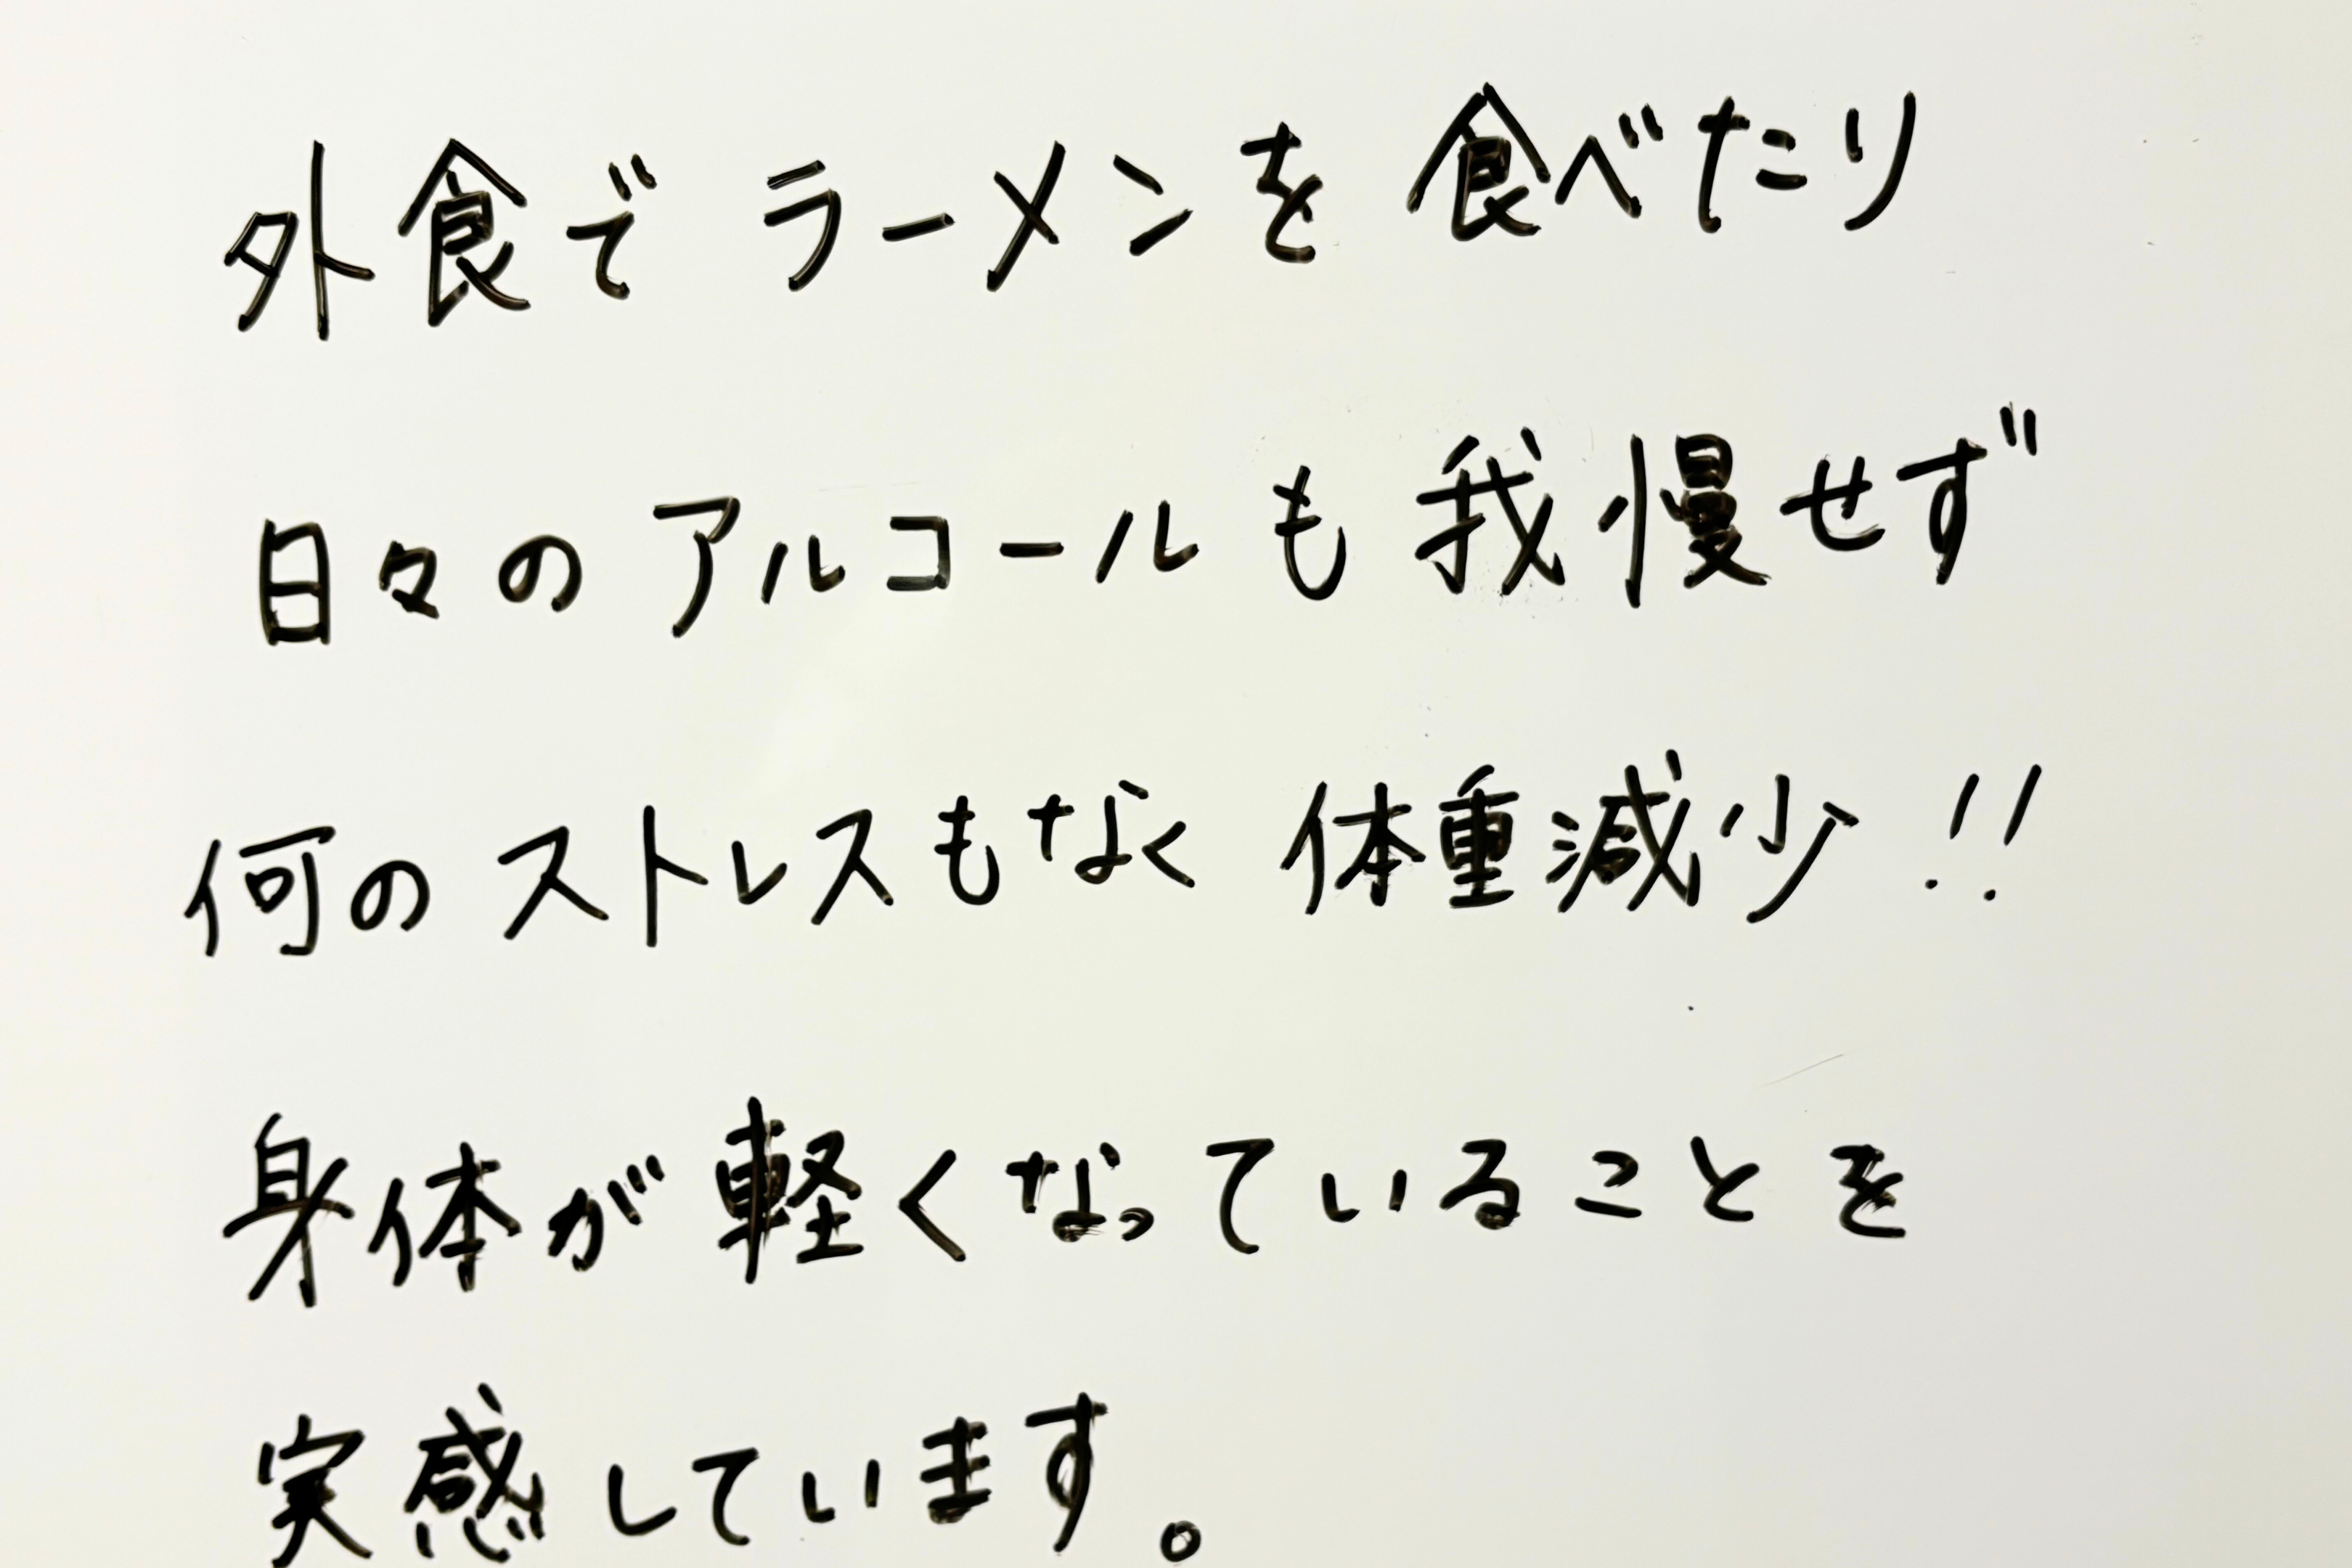 外食でラーメンを食べたり
日々のアルコールも我慢せず
何のストレスもなく体重減少!!
身体が軽くなっていることを
実感しています。